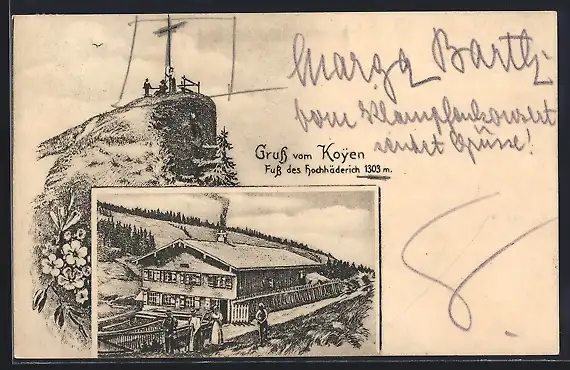 Marga Barth
vom Klampfenkonzert
sendet Grüsse!
Gruß vom Koÿen
Fuß des Hochhäderich 1303 m.